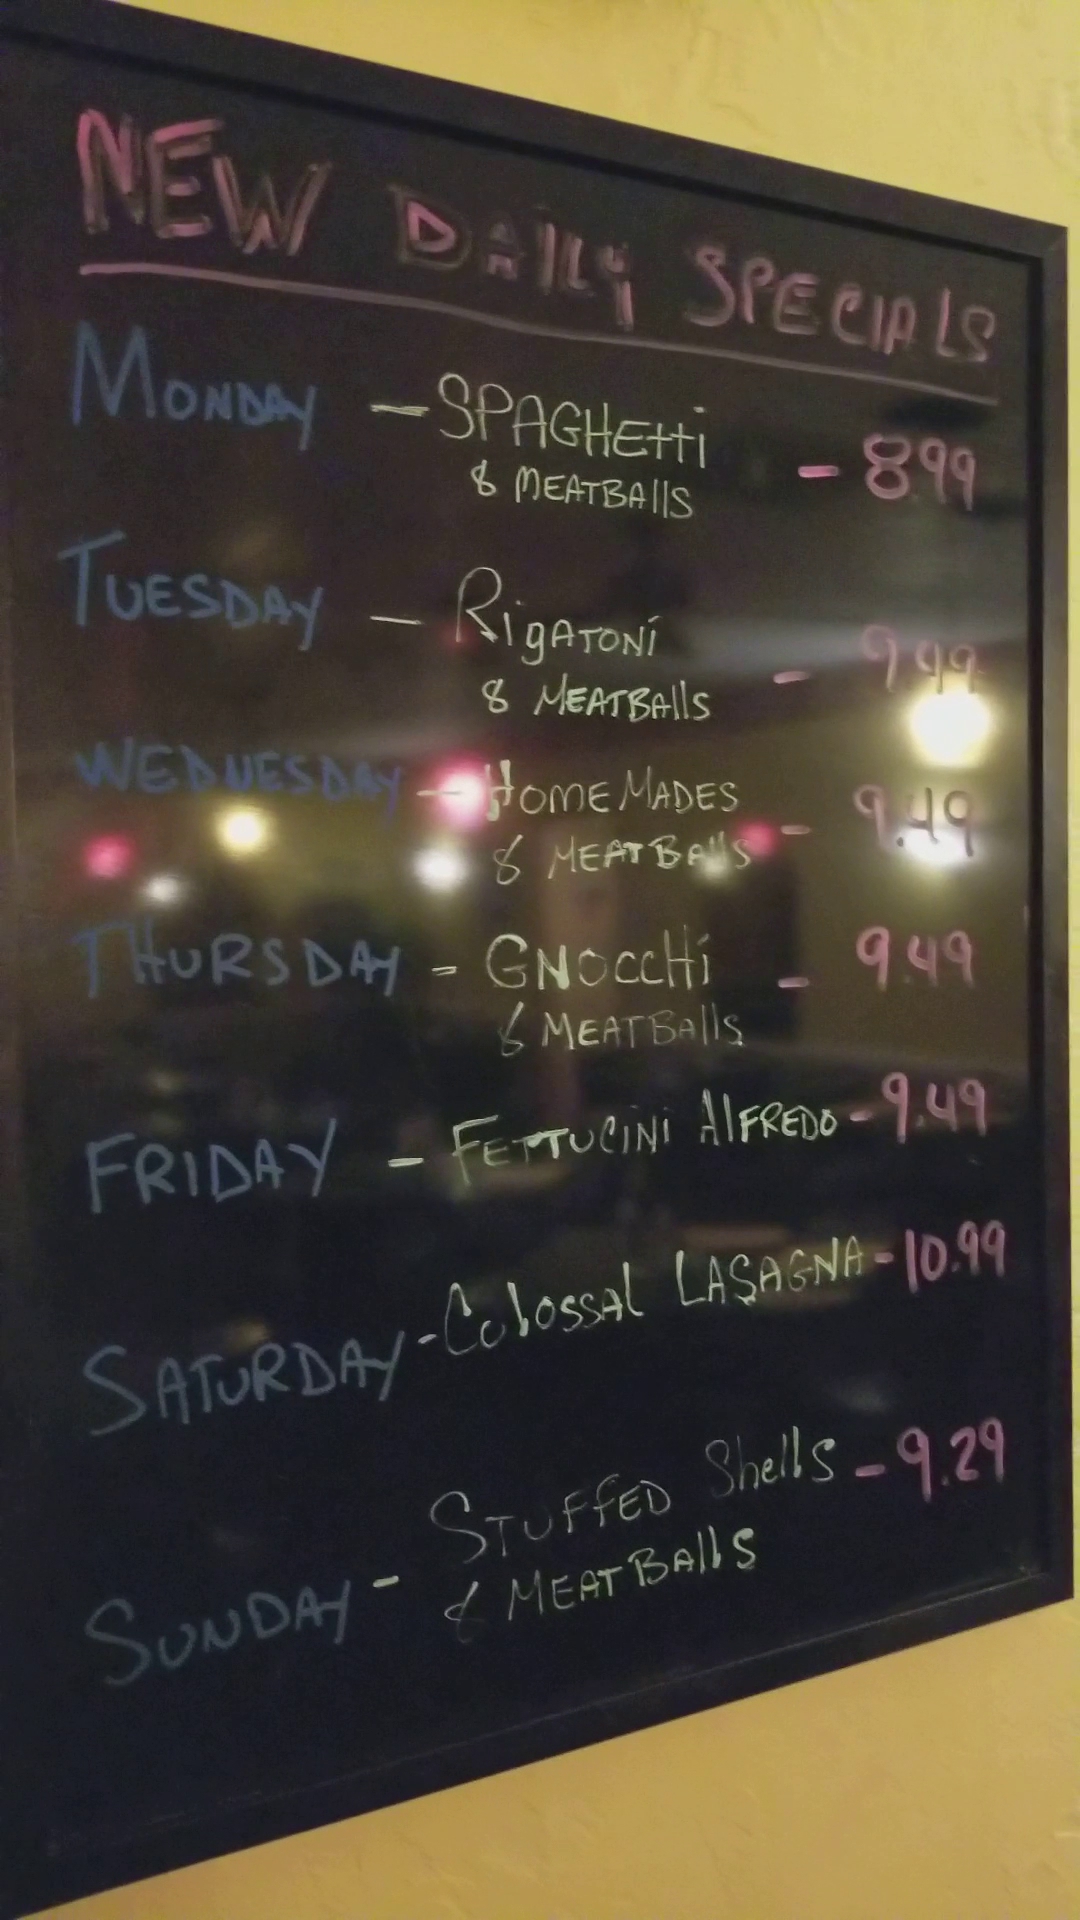 NEW DAILY SPECIALS
MONDAY - SPAGHEtti - 8.99
& MEATBAlls
TUESDAY - RigATONi - 9.49
& MEATBAlls
WEDNESDAY - HOMEMADES - 9.49
& MEATBAllS
THURSDAY - GNOCCHi - 9.49
& MEATBAlls
FRIDAY - FETTUCINi AlFREDO - 9.49
SATURDAY - COlOSSAl LASAGNA - 10.99
SUNDAY - STUFFED Shells - 9.29
& MEATBAllS